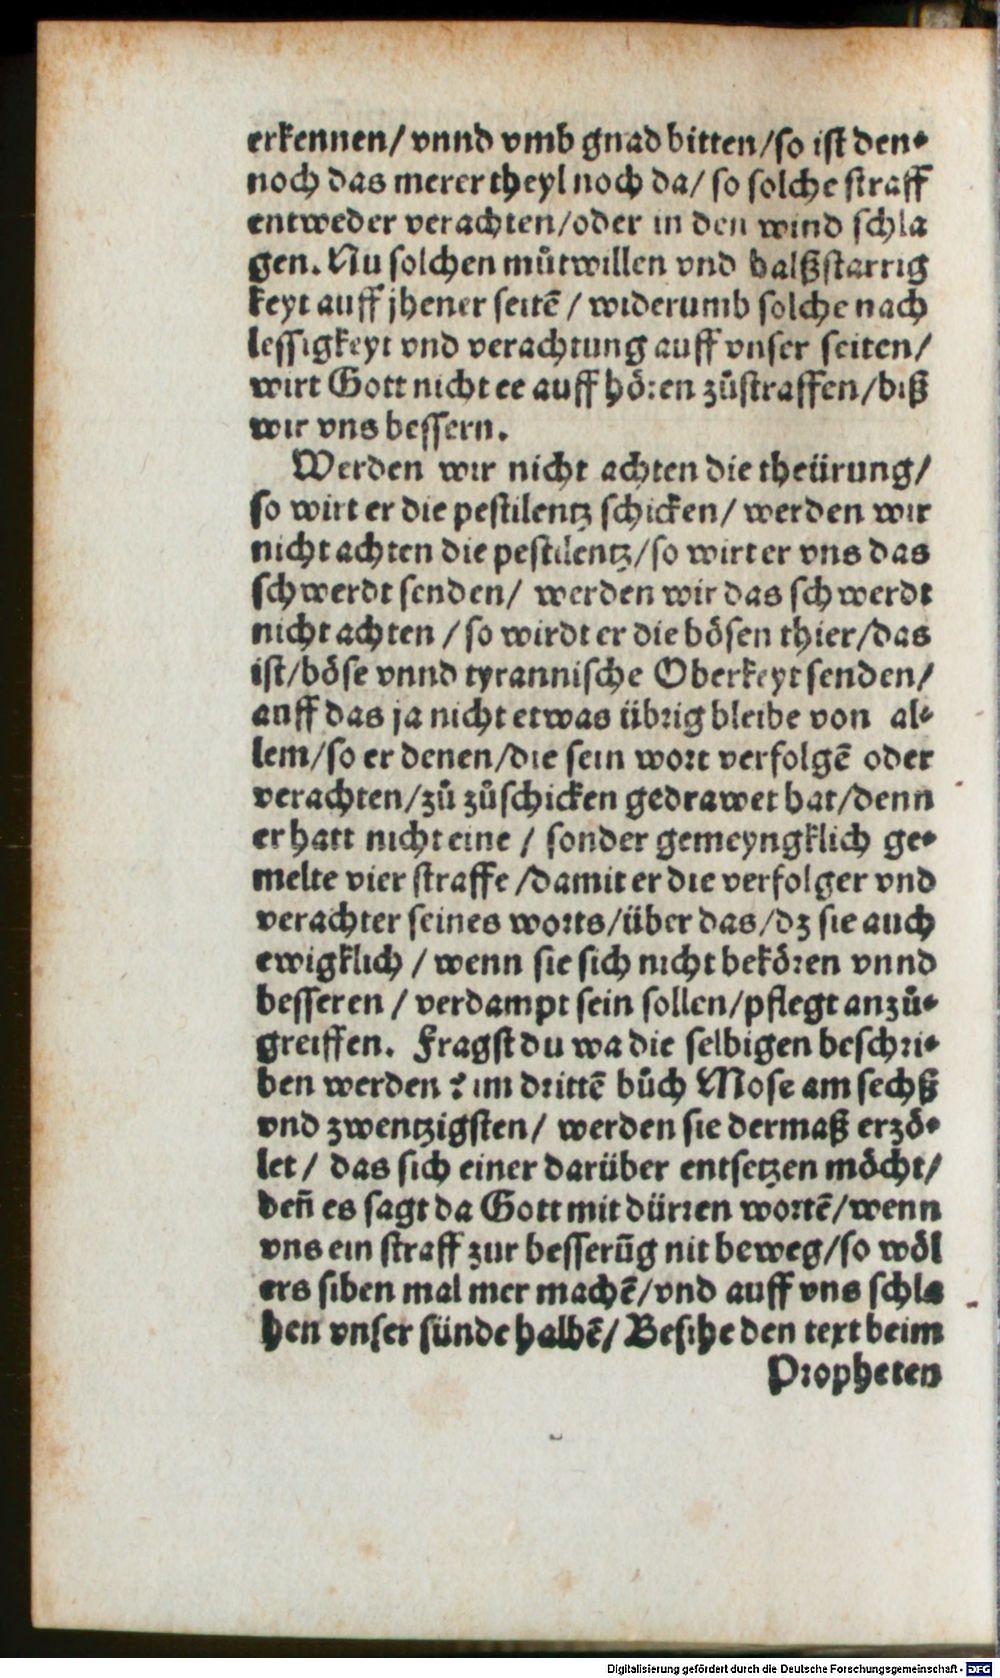 erkennen/ vnnd vmb gnad bitten/so ist den⸗
noch das merer theyl noch da/ so solche straff
entweder verachten/oder in den wind schla
gen. Nu solchen můtwillen vnd halßstarrig
keyt auff jhener seitē / widerumb solche nach
lessigkeyt vnd verachtung auff vnser seiten/
wirt Gott nicht ee auff hören zůstraffen/biß
wir vns bessern.
Werden wir nicht achten die theürung/
so wirt er die pestilentz schicken/ werden wir
nicht achten die pestilentz/so wirt er vns das
schwerdt senden/ werden wir das schwerdt
nicht achten / so wirdt er die bösen thier/das
ist/böse vnnd tyrannische Oberkeyt senden/
auff das ja nicht etwas übrig bleibe von al⸗
lem/so er denen/die sein wort verfolgē oder
verachten/zů zůschicken gedrawet hat/denn
er hatt nicht eine / sonder gemeyngklich ge⸗
melte vier straffe /damit er die verfolger vnd
verachter seines worts/über das/dz sie auch
ewigklich / wenn sie sich nicht bekören vnnd
besseren / verdampt sein sollen/pflegt anzů⸗
greiffen. Fragst du wa die selbigen beschri⸗
ben werden? im drittē bůch Mose am sechß
vnd zwentzigsten/ werden sie dermaß erzö⸗
let/ das sich einer darüber entsetzen möcht/
deñ es sagt da Gott mit dürren wortē/wenn
vns ein straff zur besserūg nit beweg/so wöl
ers siben mal mer machē/vnd auff vns schla
hen vnser sünde halbē/ Besihe den text beim
Propheten
Digitalisierung gefördert durch die Deutsche Forschungsgemeinschaft - DFG